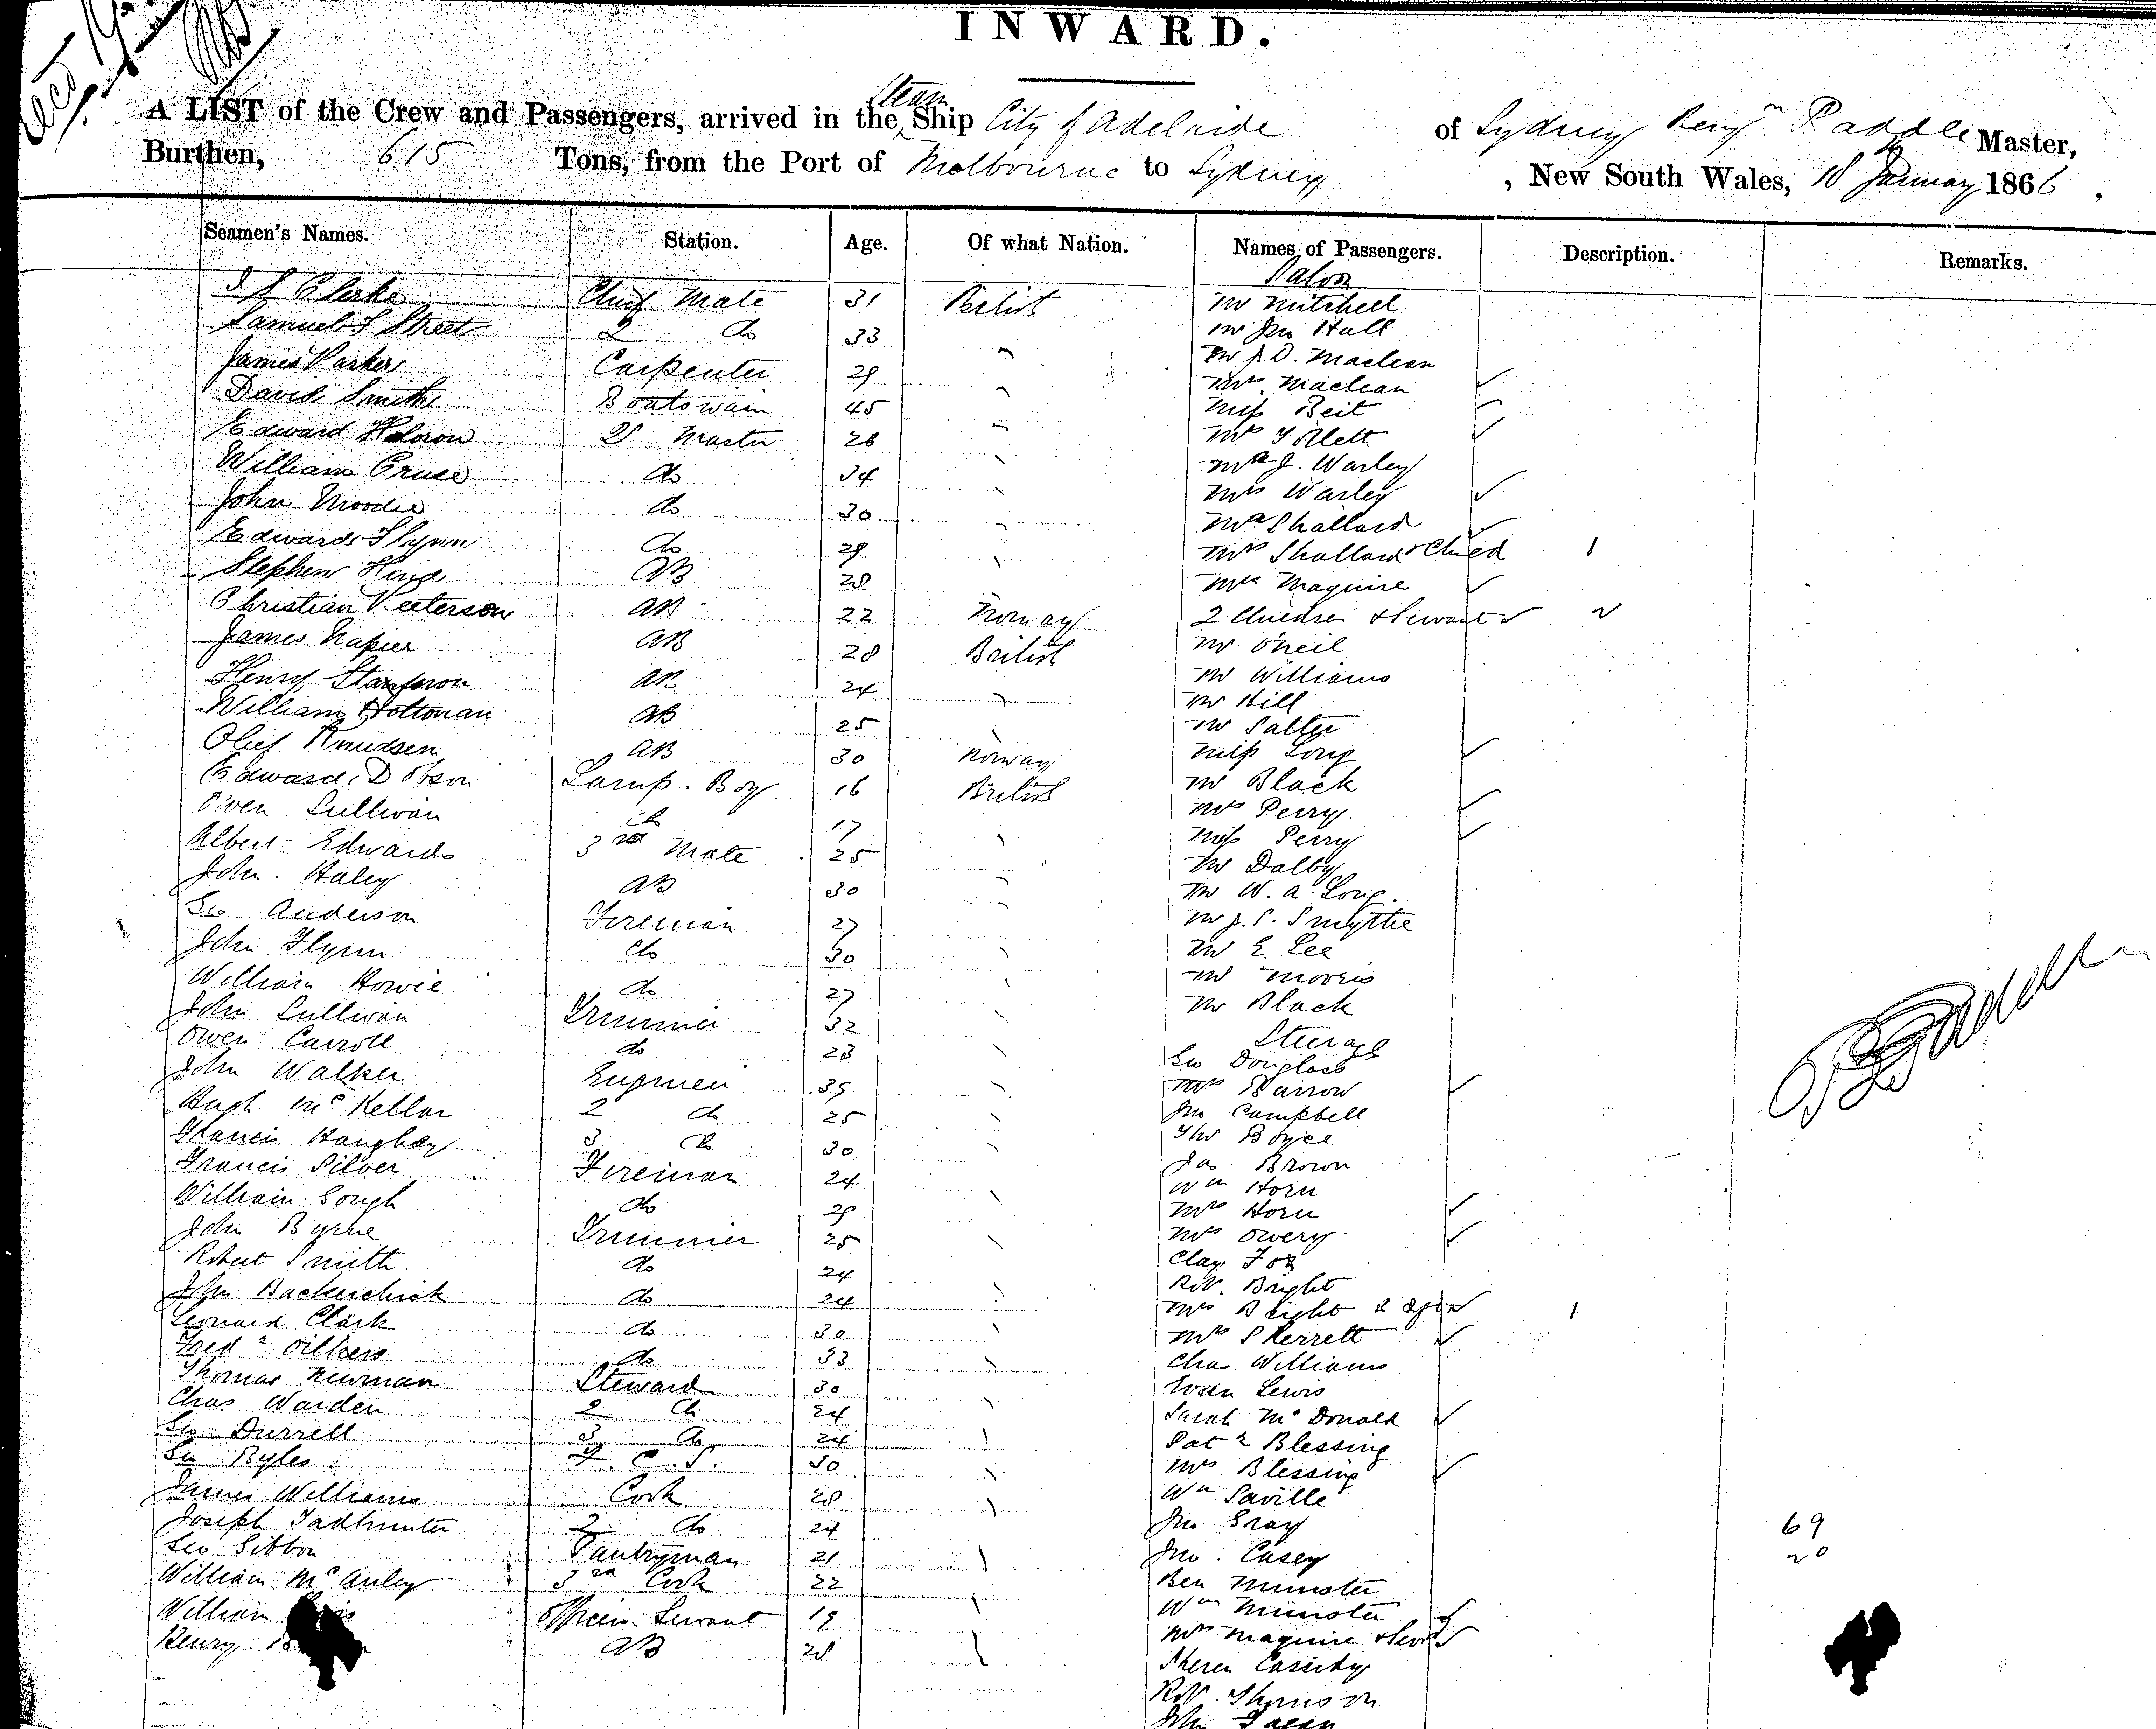 INWARD.
A LIST of the Crew and Passengers, arrived in the Steam Ship City of Adelaide of Sydney Benjn Paddle Master,
Burthen, 615 Tons, from the Port of Melbourne to Sydney , New South Wales, 18 January 1866 .
Seamen's Names. Station. Age. Of what Nation. Names of Passengers. Description. Remarks.
Saloon
Clarke Chief Mate 31 British Mr Mitchell
Samuel S Street 2 do 33 Mr Jno Hall
James Parker Carpenter 29 Mr J. D. Maclean
David Smith Boatswain 45 Mrs Maclean
Edward 2r Master 26 Miss Beit
William Cruse do 34 Mr J. Warley
John Moodie do 30 Mrs Warley
Edward Flynn do 29 Mr Shallard
Stephen King AB 28 Mrs Shallard & Child 1
Christian Peterson AB 22 Norway Mrs Maguire
James Napier AB 28 British 2 Children & Servant 2
Henry AB 24 Mr O'Neil
William Holtman AB 25 Mr Williams
Olief Knudsen AB 30 Norway Mr Hill
Edward Dobson Lamp. Boy 16 British Mr Salter
Owen Sullivan do 17 Miss Long
Albert Edwards 3rd Mate 25 Mr Black
John Haley AB 30 Mrs Perry
Geo Anderson Fireman 27 Miss Perry
John Flynn do 30 Mr Dalby
William Howie do 27 Mr W. A. Long
John Sullivan Trimmer 32 Mr J. S. Smythe
Owen Carroll do 23 Mr E Lee
John Walker Engineer 35 Mr Morris
Hugh McKellar 2 do 25 Mr Black
Francis Haughey 3 do 30 Steerage
Francis Silver Fireman 24 Geo Douglass
William Gough do 29 Mrs Barrow
John Byrne Trimmer 25 Jno Campbell
Robert Smith do 24 Thos Boyce
John do 24 Jas Brown
Leonard Clark do 30 Wm Horn
Fredk do 33 Mrs Horn
Thomas Newman Steward 30 Mrs Overy
Chas Warden 2 do 24 Clay Fox
Geo Durrell 3 do 24 Robt Bright
Geo Ryles F. C. S. 30 Mrs Bright
James Williams Cook 28 Mrs Skerrett
Joseph Tadhunter 2 do 24 Chas Williams
Geo Gibbon Pantryman 21 Evan Lewis
William McAuley 3rd Cook 22 Sarah McDonald
William Officers Servant 19 Patk Blessing
Henry AB 28 Mrs Blessing
Wm Saville
Jno Gray
Jno. Casey
Ben Munster
Wm Munster
Mrs Maguire & Servt
Cassidy
Robt Thomson
John
69
20